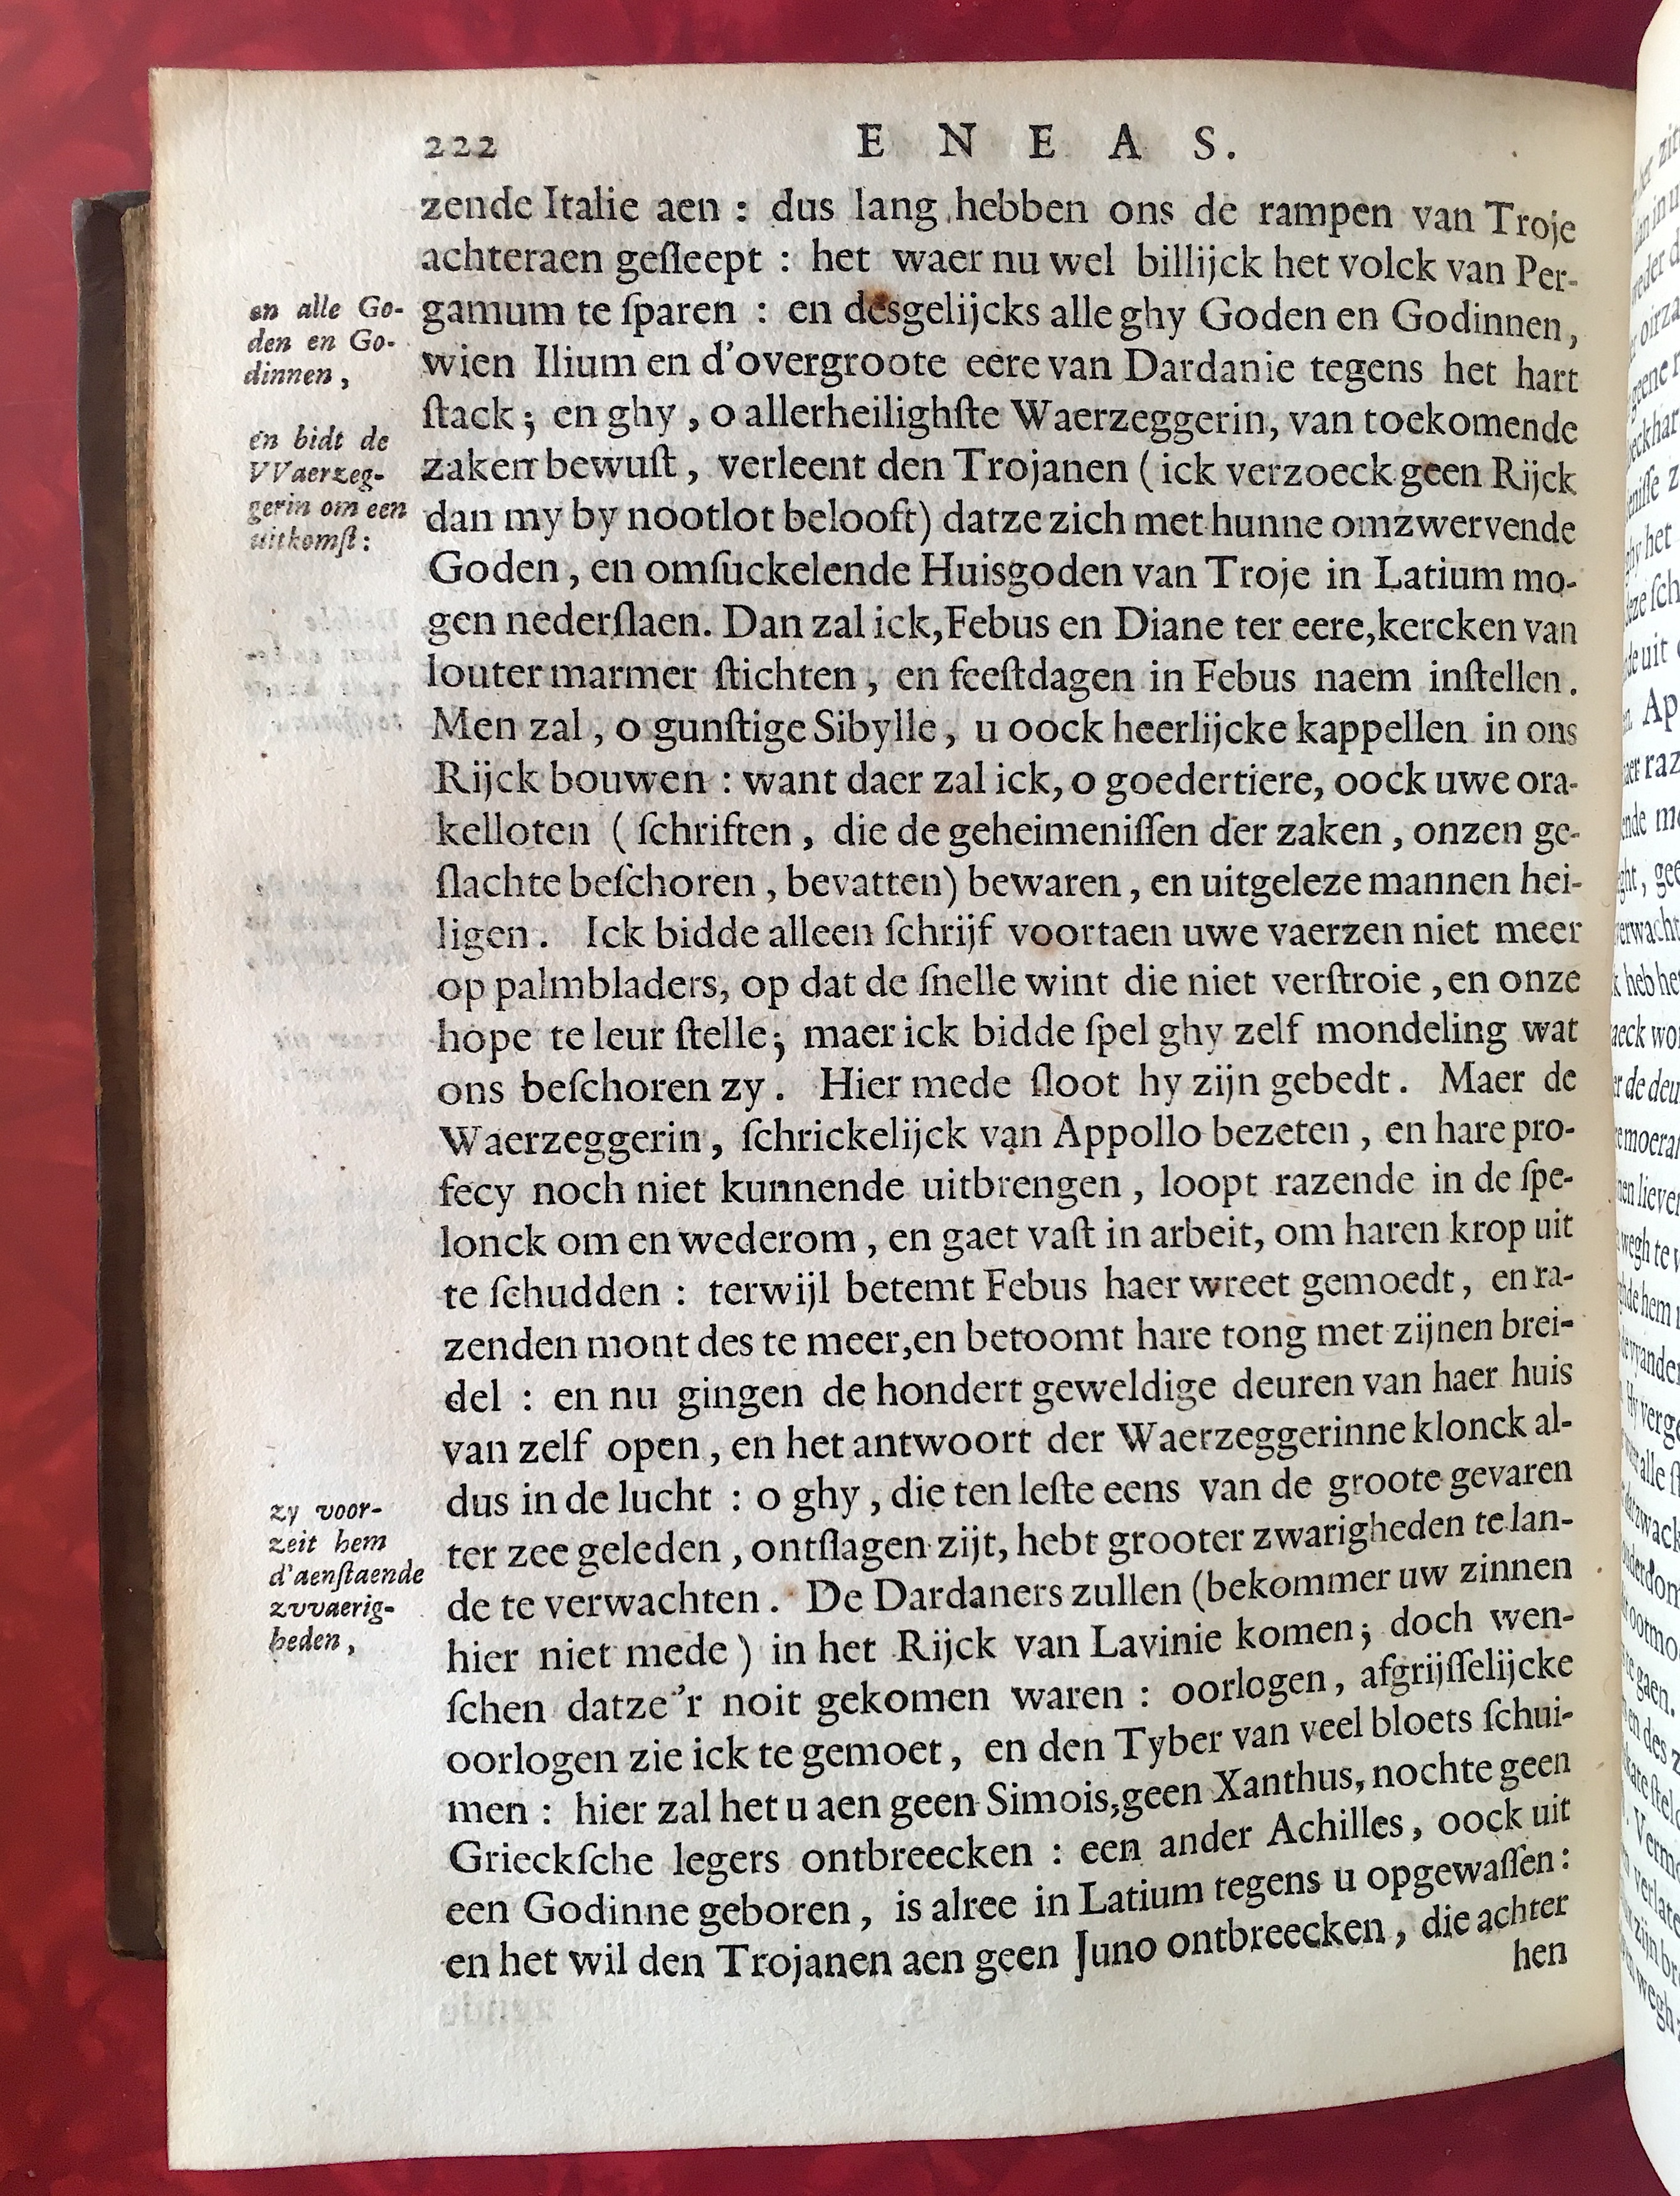 222 ENEAS.
zende Italie aen : dus lang hebben ons de rampen van Troje
achteraen geſleept : het waer nu wel billijck het volck van Per-
gamum te ſparen : en desgelijcks alle ghy Goden en Godinnen,
wien Ilium en d'overgroote eere van Dardanie tegens het hart
ſtack; en ghy, o allerheilighſte Waerzeggerin, van toekomende
zaken bewuſt, verleent den Trojanen (ick verzoeck geen Rijck
dan my by nootlot belooft) datze zich met hunne omzwervende
Goden, en omſuckelende Huisgoden van Troje in Latium mo-
gen nederſlaen. Dan zal ick, Febus en Diane ter eere, kercken van
louter marmer ſtichten, en feeſtdagen in Febus naem inſtellen.
Men zal, o gunſtige Sibylle, u oock heerlijcke kappellen in ons
Rijck bouwen : want daer zal ick, o goedertiere, oock uwe ora-
kelloten (ſchriften, die de geheimeniſſen der zaken, onzen ge-
ſlachte beſchoren, bevatten) bewaren, en uitgeleze mannen hei-
ligen. Ick bidde alleen ſchrijf voortaen uwe vaerzen niet meer
op palmbladers, op dat de ſnelle wint die niet verſtroie, en onze
hope te leur ſtelle; maer ick bidde ſpel ghy zelf mondeling wat
ons beſchoren zy. Hier mede ſloot hy zijn gebedt. Maer de
Waerzeggerin, ſchrickelijck van Appollo bezeten, en hare pro-
fecy noch niet kunnende uitbrengen, loopt razende in de ſpe-
lonck om en wederom, en gaet vaſt in arbeit, om haren krop uit
te ſchudden : terwijl betemt Febus haer wreet gemoedt, en ra-
zenden mont des te meer, en betoomt hare tong met zijnen brei-
del : en nu gingen de hondert geweldige deuren van haer huis
van zelf open, en het antwoort der Waerzeggerinne klonck al-
dus in de lucht : o ghy, die ten leſte eens van de groote gevaren
ter zee geleden, ontſlagen zijt, hebt grooter zwarigheden te lan-
de te verwachten. De Dardaners zullen (bekommer uw zinnen
hier niet mede) in het Rijck van Lavinie komen; doch wen-
ſchen datze'r noit gekomen waren : oorlogen, afgrijſſelijcke
oorlogen zie ick te gemoet, en den Tyber van veel bloets ſchui-
men : hier zal het u aen geen Simois, geen Xanthus, nochte geen
Grieckſche legers ontbreecken : een ander Achilles, oock uit
een Godinne geboren, is alree in Latium tegens u opgewaſſen:
en het wil den Trojanen aen geen Juno ontbreecken, die achter
hen
en alle Go-
den en Go-
dinnen,
en bidt de
VVaerzeg-
gerin om een
uitkomſt:
zy voor-
zeit hem
d'aenſtaende
zvvaerig-
heden,